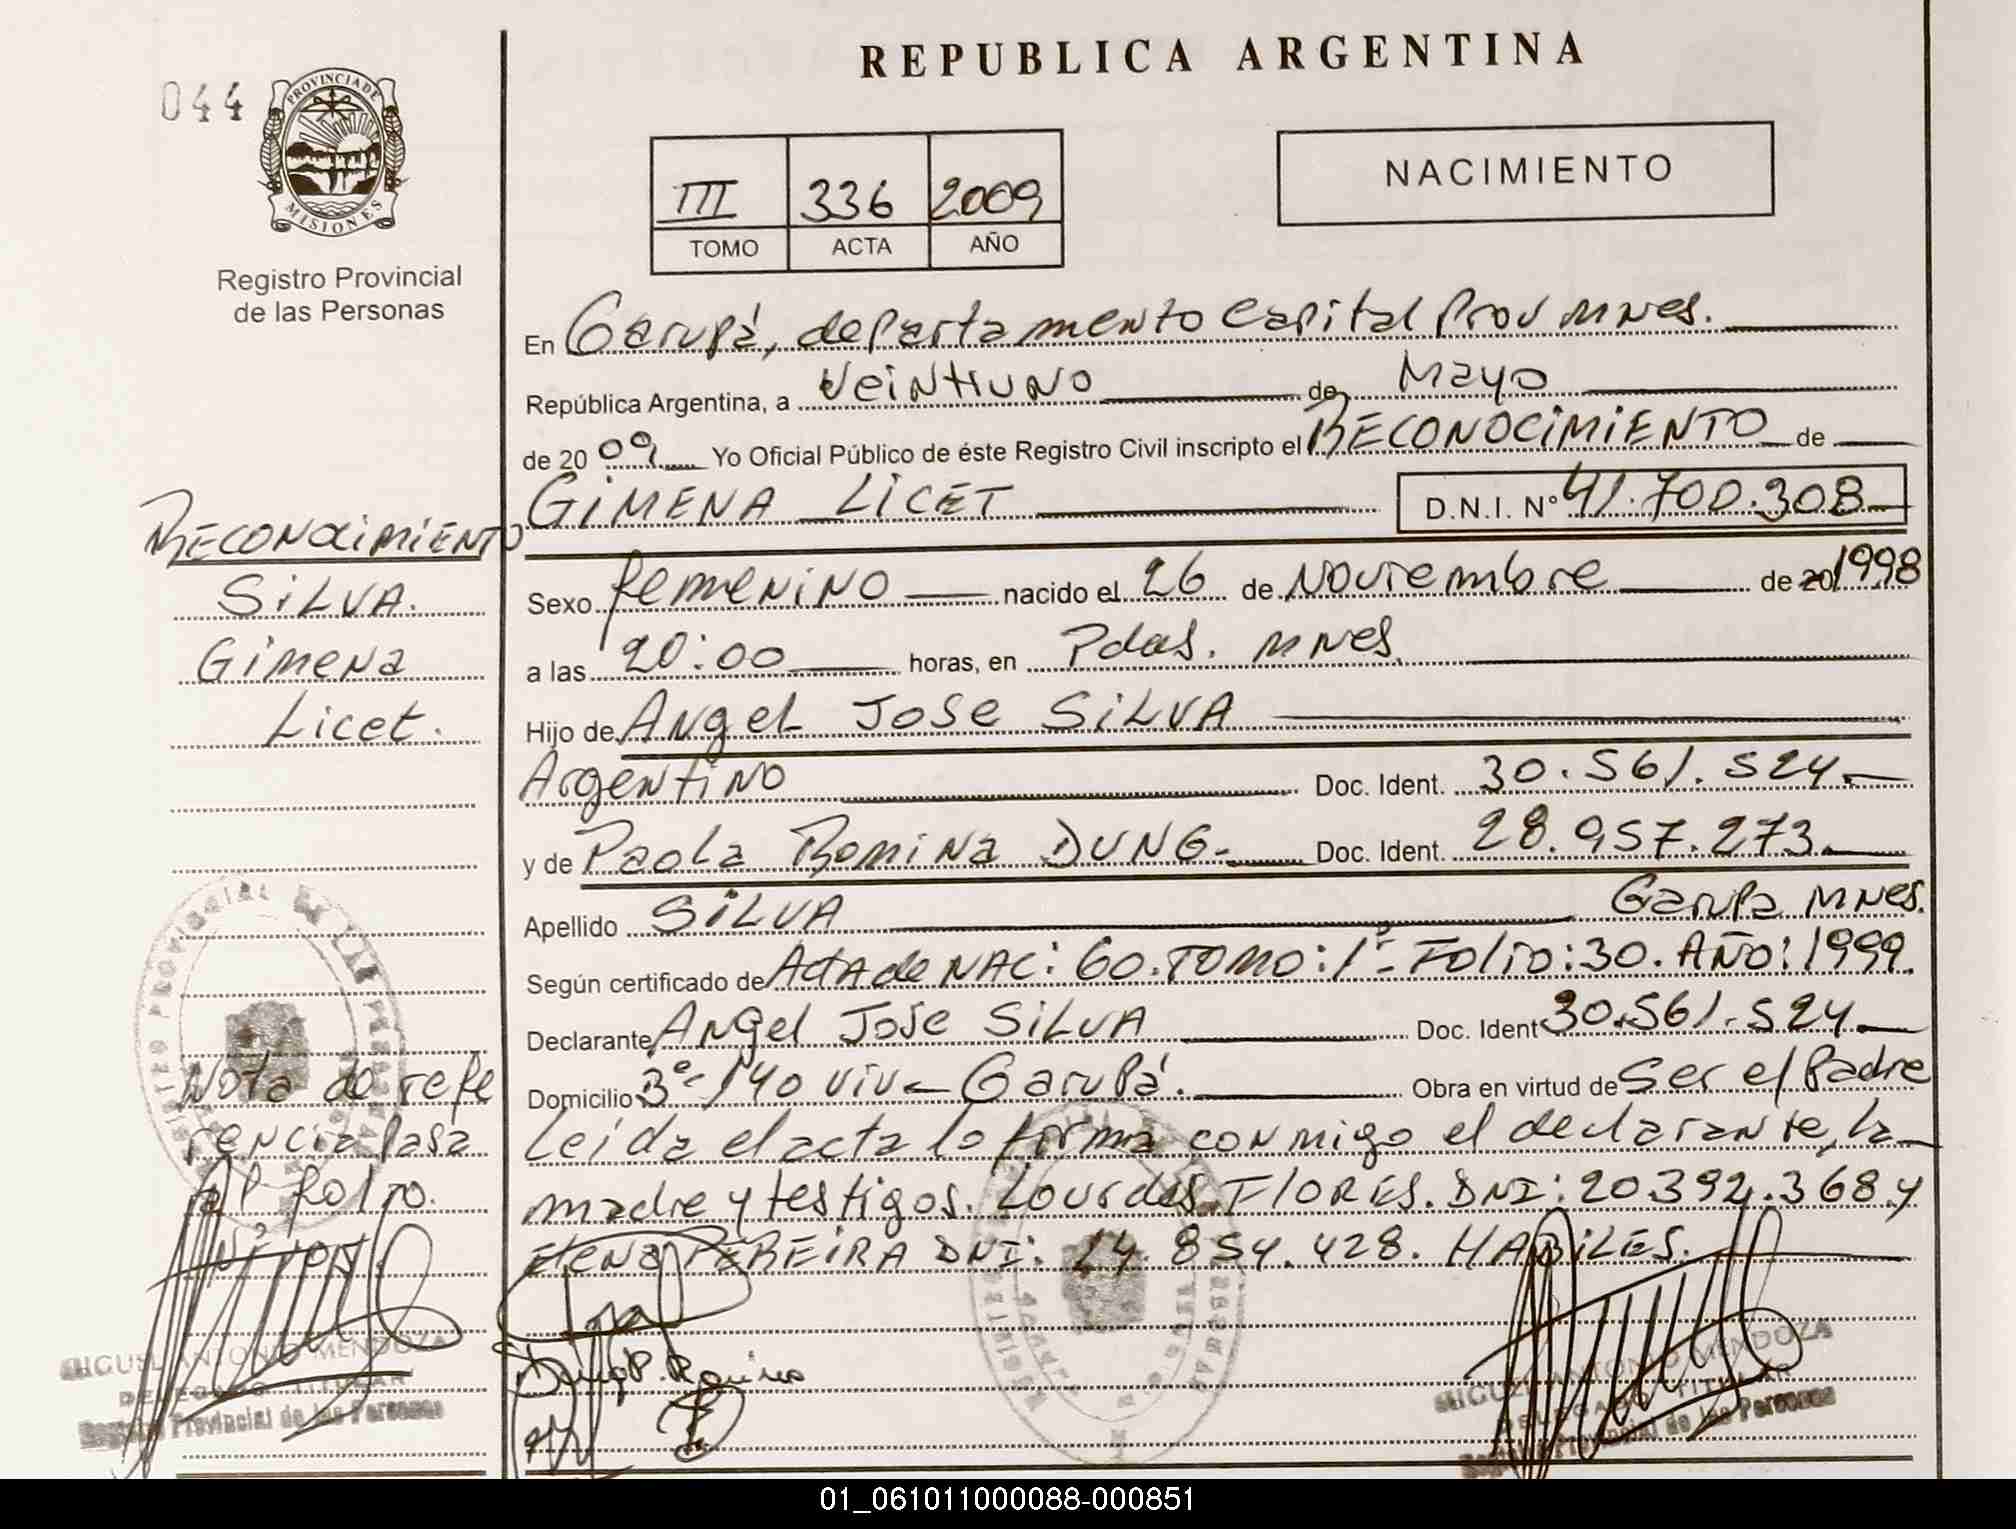 044
PROVINCIA DE
MISIONES
Registro Provincial
de las Personas
REPUBLICA ARGENTINA
III 336 2009
TOMO ACTA AÑO
NACIMIENTO
En Garupá, departamento Capital Prov Mnes.
República Argentina, a Veintiuno de Mayo
de 20 09 Yo Oficial Público de éste Registro Civil inscripto el RECONOCIMIENTO de
GIMENA LICET D.N.I. N° 41.700.308
Sexo femenino nacido el 26 de Noviembre de 20 1998
a las 20:00 horas, en Pdas. Mnes.
Hijo de Angel Jose SILVA
Argentino Doc. Ident. 30.561.524
y de Paola Romina DUNG Doc. Ident. 28.957.273
Apellido SILVA Garupa Mnes.
Según certificado de Acta de NAC: 60. TOMO: 1°- Folio: 30. AÑO: 1999.
Declarante Angel Jose SILVA Doc. Ident 30.561.524
Domicilio 3°- 140 viv - Garupá. Obra en virtud de Ser el Padre
Leída el acta la firma conmigo el declarante, la
madre y testigos. Lourdes FLORES. DNI: 20.392.368 y
Elena PEREIRA DNI: 14.854.428. HABILES.
RECONOCIMIENTO
SILVA.
Gimena
Licet.
Nota de refe
rencia pasa
Al folio
MIGUEL ANTONIO MENDOZA
DELEGADO TITULAR
Registro Provincial de las Personas
Dung P. Romina
MIGUEL ANTONIO MENDOZA
DELEGADO TITULAR
Registro Provincial de las Personas
01_061011000088-000851